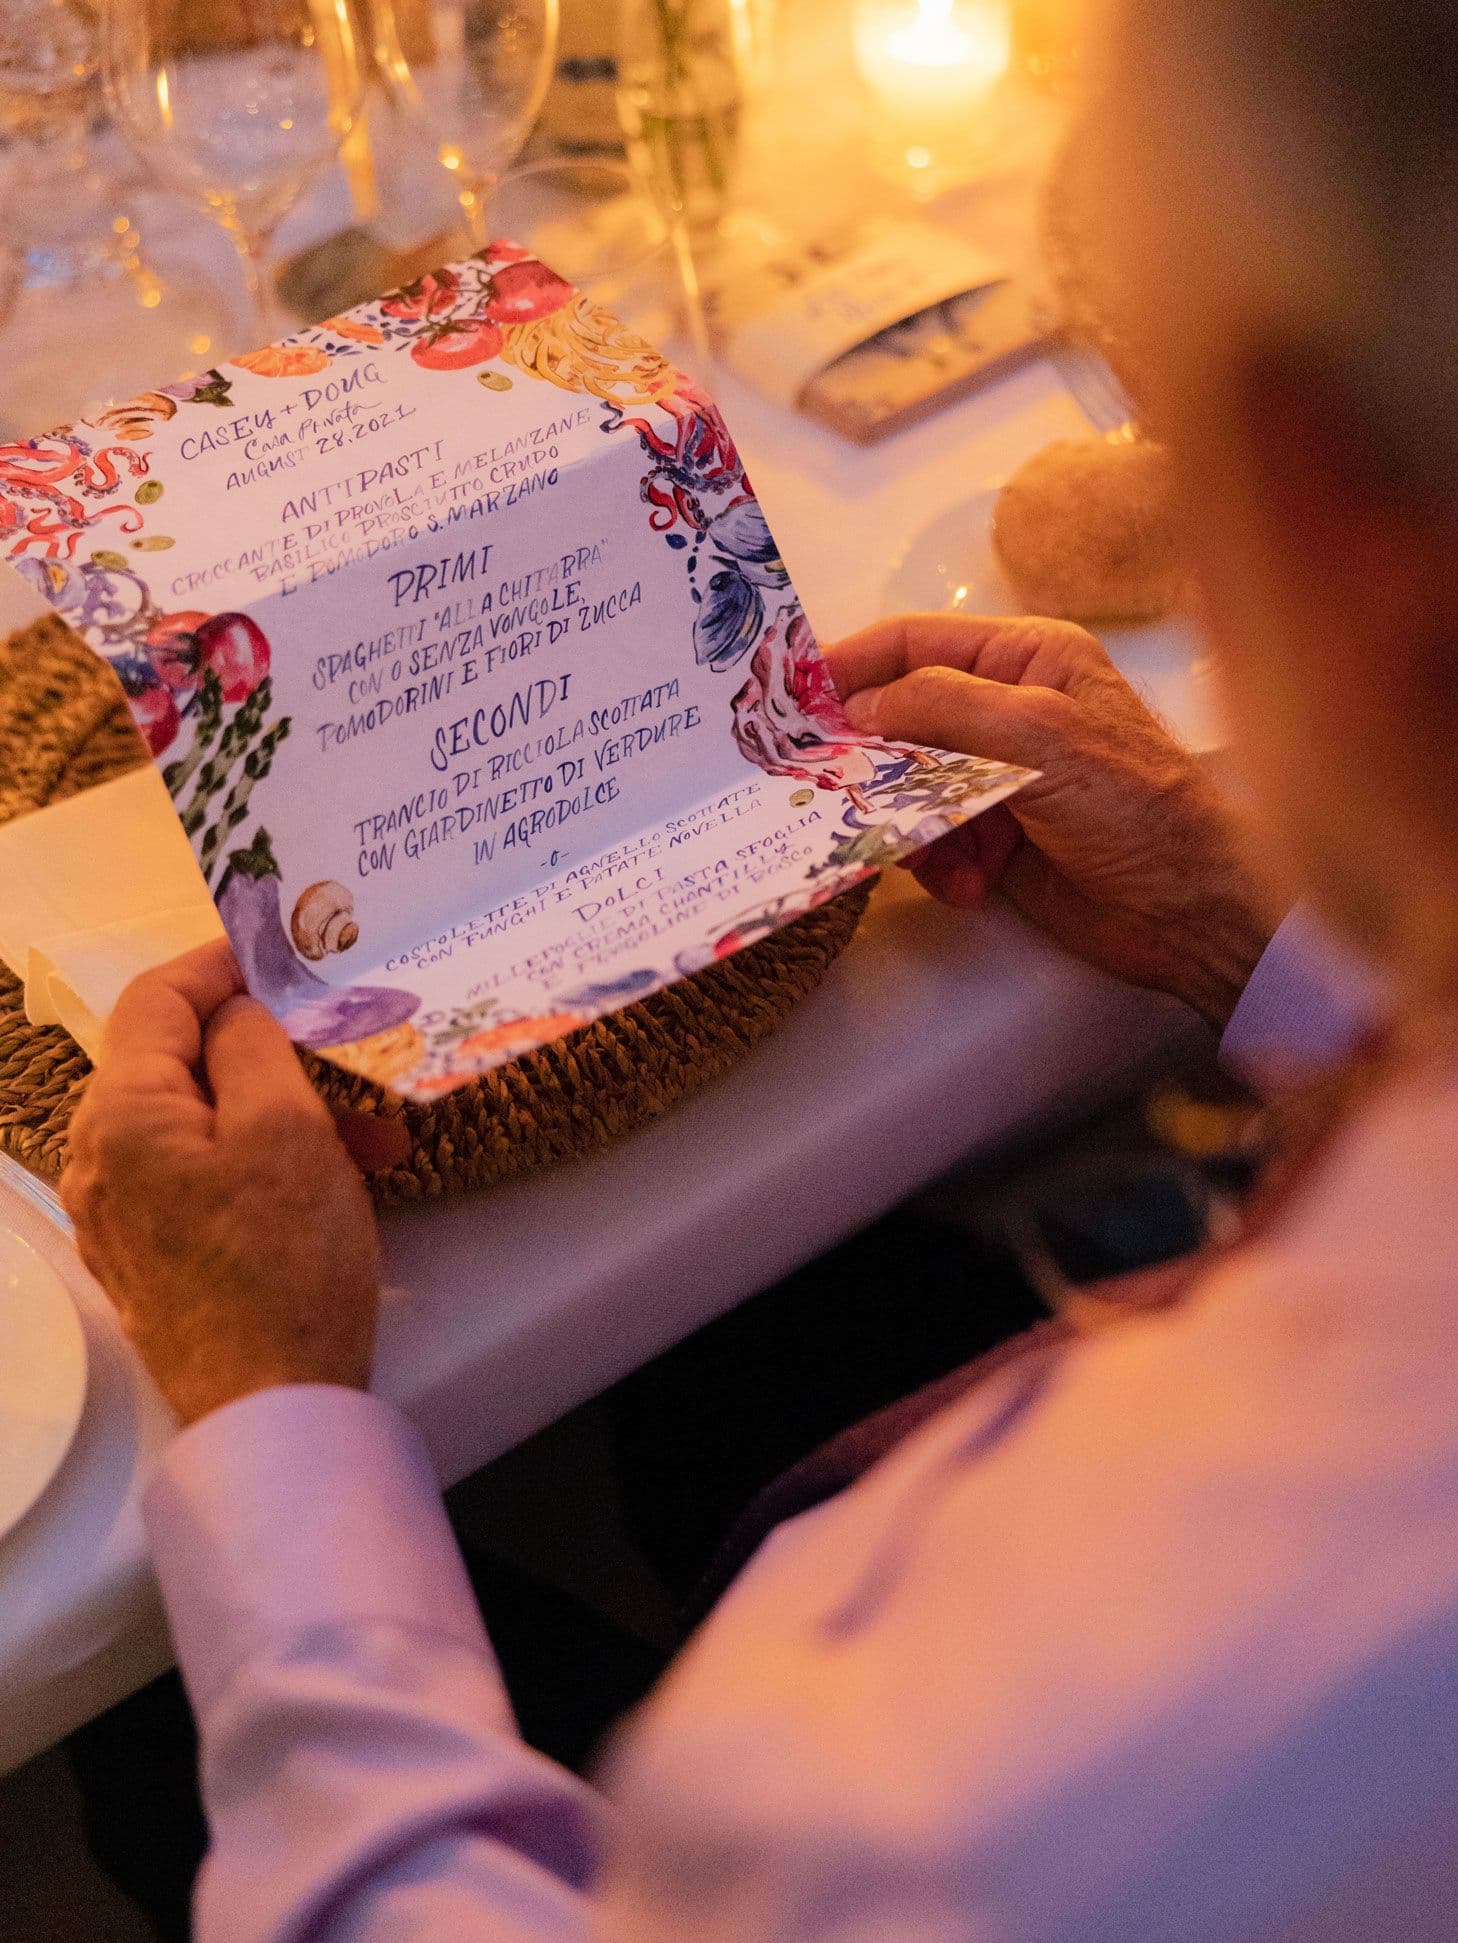 CASEY + DOUG
Casa Privata
AUGUST 28, 2021
ANTIPASTI
CROCCANTE DI PROVOLA E MELANZANE
BASILICO PROSCIUTTO CRUDO
E POMODORO S. MARZANO
PRIMI
SPAGHETTI "ALLA CHITARRA"
CON O SENZA VONGOLE,
POMODORINI E FIORI DI ZUCCA
SECONDI
TRANCIO DI RICCIOLA SCOTTATA
CON GIARDINETTO DI VERDURE
IN AGRODOLCE
-o-
COSTOLETTE DI AGNELLO SCOTTATE
CON FUNGHI E PATATE NOVELLA
DOLCI
MILLEFOGLIE DI PASTA SFOGLIA
CON CREMA CHANTILLY
E FRAGOLINE DI BOSCO